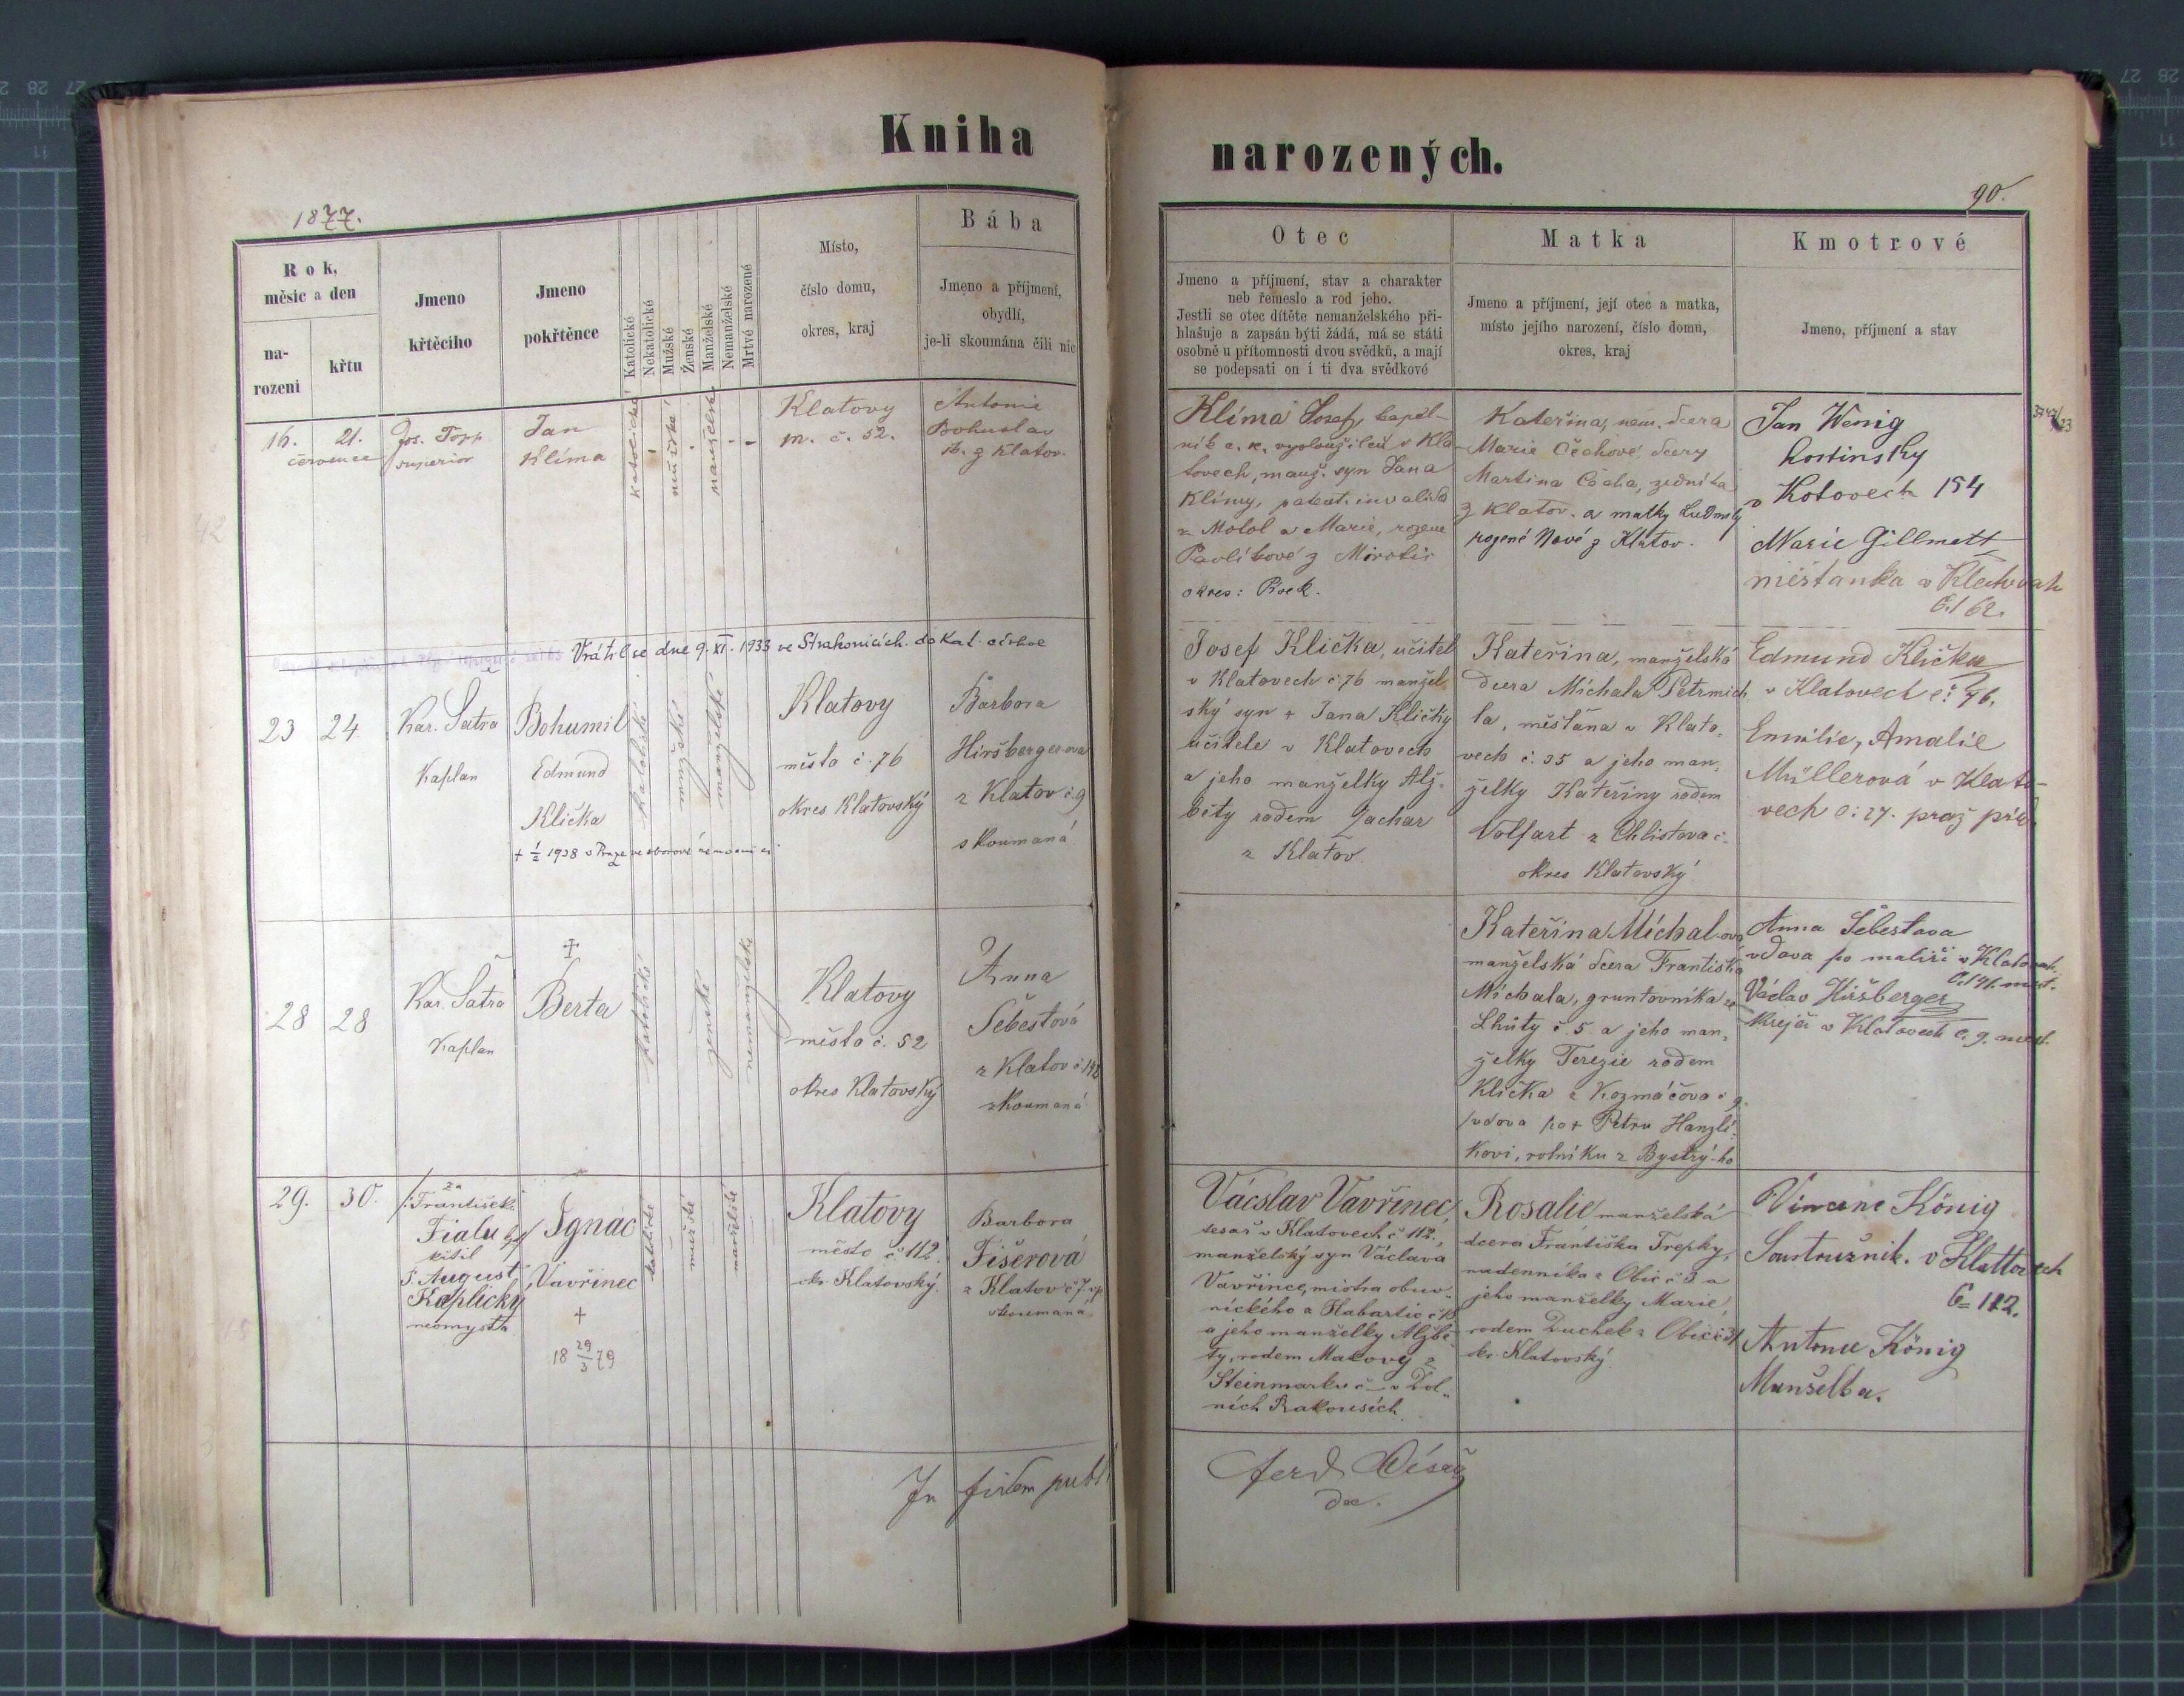 Kniha
narozených.
1877.
90.
Rok,
měsíc a den
na-
rozeni
křtu
Jmeno
křtěcího
Jmeno
pokřtěnce
Katolické
Nekatolické
Mužské
Ženské
Manželské
Nemanželské
Mrtvé narozené
Místo,
číslo domu,
okres, kraj
Bába
Jmeno a příjmení,
obydlí,
je-li skoumána čili nic
Otec
Jmeno a příjmení, stav a charakter
neb řemeslo a rod jeho.
Jestli se otec dítěte nemanželského při-
hlašuje a zapsán býti žádá, má se státi
osobně u přítomnosti dvou svědků, a mají
se podepsati on i ti dva svědkové
Matka
Jmeno a příjmení, její otec a matka,
místo jejího narození, číslo domu,
okres, kraj
Kmotrové
Jmeno, příjmení a stav
16. 21.
července
Jos.
superior
Jan
Klíma
katolické
mužské
manželské
Klatovy
m. č. 52.
Antonie
Bohuslav
z Klatov.
Klíma Josef, kapel-
ník c. k. vysloužilců v Kla
tovech, manž. syn Jana
Klímy, patent. invalida
z Motol a Marie, rozené
Pavlíkové z Mirotic
okres: Písek.
Kateřina, nem. dcera
Marie Čechové, dcery
Martina Čecha, zedníka
z Klatov. a matky Ludmily
rozené Nové z Klatov.
Jan Wenig
hostinsky
v Kotovech 154
Marie Gillmett
měštanka v
č. 162.
Vrátil se dne 9. XI. 1933 ve Strakonicích do kat. církve
23 24
Kar. Satra
Kaplan
Bohumil
Edmund
Klička
+ 1/2 1938 v Praze ve sborové nemocnici
katolické
mužské
manželské
Klatovy
město č. 76
okres Klatovský
Barbora
Hiršbergerova
z Klatov č. 9
skoumaná
Josef Klička, učitel
v Klatovech č. 76 manžel
ský syn + Jana Kličky
učitele v Klatovech
a jeho manželky Alž-
běty rodem Zachar
z Klatov.
Kateřina, manželská
dcera Michala Petrmich
la, měštana v Klato-
vech č. 35 a jeho man-
želky Kateřiny rodem
Volfart z Chlistova č.
okres Klatovský
Edmund Klička
v Klatovech č. 76.
Emilie, Amalie
Müllerová v Klato-
vech č: 27. praž
28 28
Kar. Satra
Kaplan
+
Berta
katolické
ženské
nemanželské
Klatovy
město č. 52
okres Klatovský
Anna
Šebestová
z Klatov č.
skoumaná
Kateřina Michalova
manželská dcera Františka
Michala, gruntovníka ze
Lhůty č. 5 a jeho man-
želky Terezie rodem
Klička z Kozmáčova č. 9
vdova po + Petru Hanzlí-
kovi, rolníku z Bystrý-ho
Anna Šebestava
vdava po maliři v Klatovech
Václav Hiršberger
krejčí v Klatovech č. 9. mest.
29. 30.
za
František
Fialu
křtil
P. August
Kaplický
neomysta
Ignác
Vavřinec
+
18 29/3 79
katolické
mužské
manželské
Klatovy
město č. 112
okr. Klatovský.
Barbora
Fišerová
z Klatov č. 7
skoumaná
Vácslav Vavřinec,
tesař v Klatovech č. 112.,
manželský syn Václava
Vavřince, mistra obuv-
nického z Habartic č.
a jeho manželky Alžbě-
ty, rodem Makovy z
Steinmarku č - v Dol-
ních Rakousích.
Rosalie manželská
dcera Františka Trepky,
nádenníka z Obic č. 3 a
jeho manželky Marie,
rodem Duchek z Obic č.
okr. Klatovský.
Vincenc König
Soustružnik. v Klattovech
č= 112.
Antonie König
Manželka.
In fidem publ.
Ferd.